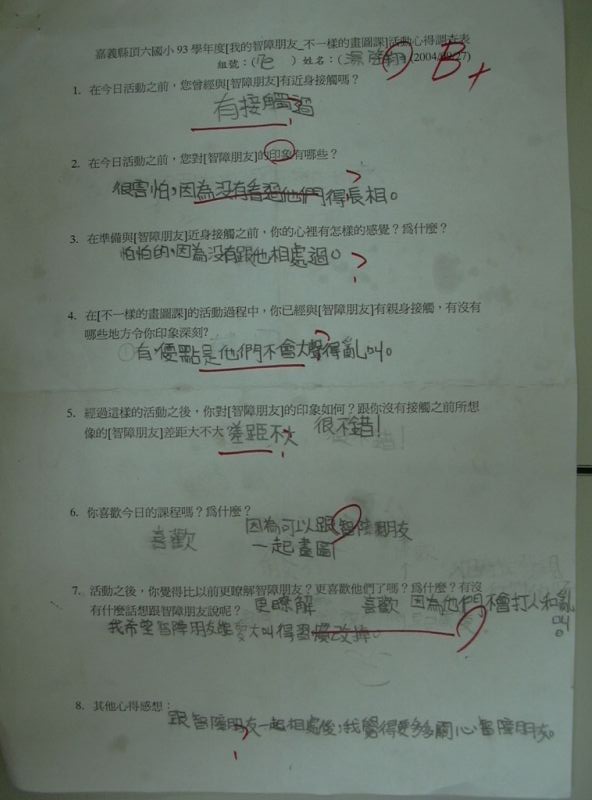 嘉義縣頂六國小 93 學年度[我的智障朋友_不一樣的畫圖課]活動心得調查表
組號：( ) 姓名：( ) (2004/ /27)
B+
1. 在今日活動之前，您曾經與[智障朋友]有近身接觸嗎？
有接觸過
2. 在今日活動之前，您對[智障朋友]的印象有哪些？
很害怕，因為沒有看過他們得長相。
3. 在準備與[智障朋友]近身接觸之前，你的心裡有怎樣的感覺？為什麼？
怕怕的，因為沒有跟他相處過。
4. 在[不一樣的畫圖課]的活動過程中，你已經與[智障朋友]有親身接觸，有沒有
哪些地方令你印象深刻?
①有，優點是他們不會大聲得亂叫。
5. 經過這樣的活動之後，你對[智障朋友]的印象如何？跟你沒有接觸之前所想
像的[智障朋友]差距大不大？ 差距不大 很不錯！
6. 你喜歡今日的課程嗎？為什麼？
喜歡 因為可以跟智障朋友
一起畫圖
7. 活動之後，你覺得比以前更瞭解智障朋友？更喜歡他們了嗎？為什麼？有沒
有什麼話想跟智障朋友說呢？ 更瞭解 喜歡 因為他們不會打人和亂
叫。
我希望智障朋友能 大叫得習慣改掉。
8. 其他心得感想：
跟智障朋友一起相處後，我覺得要多多關心智障朋友。